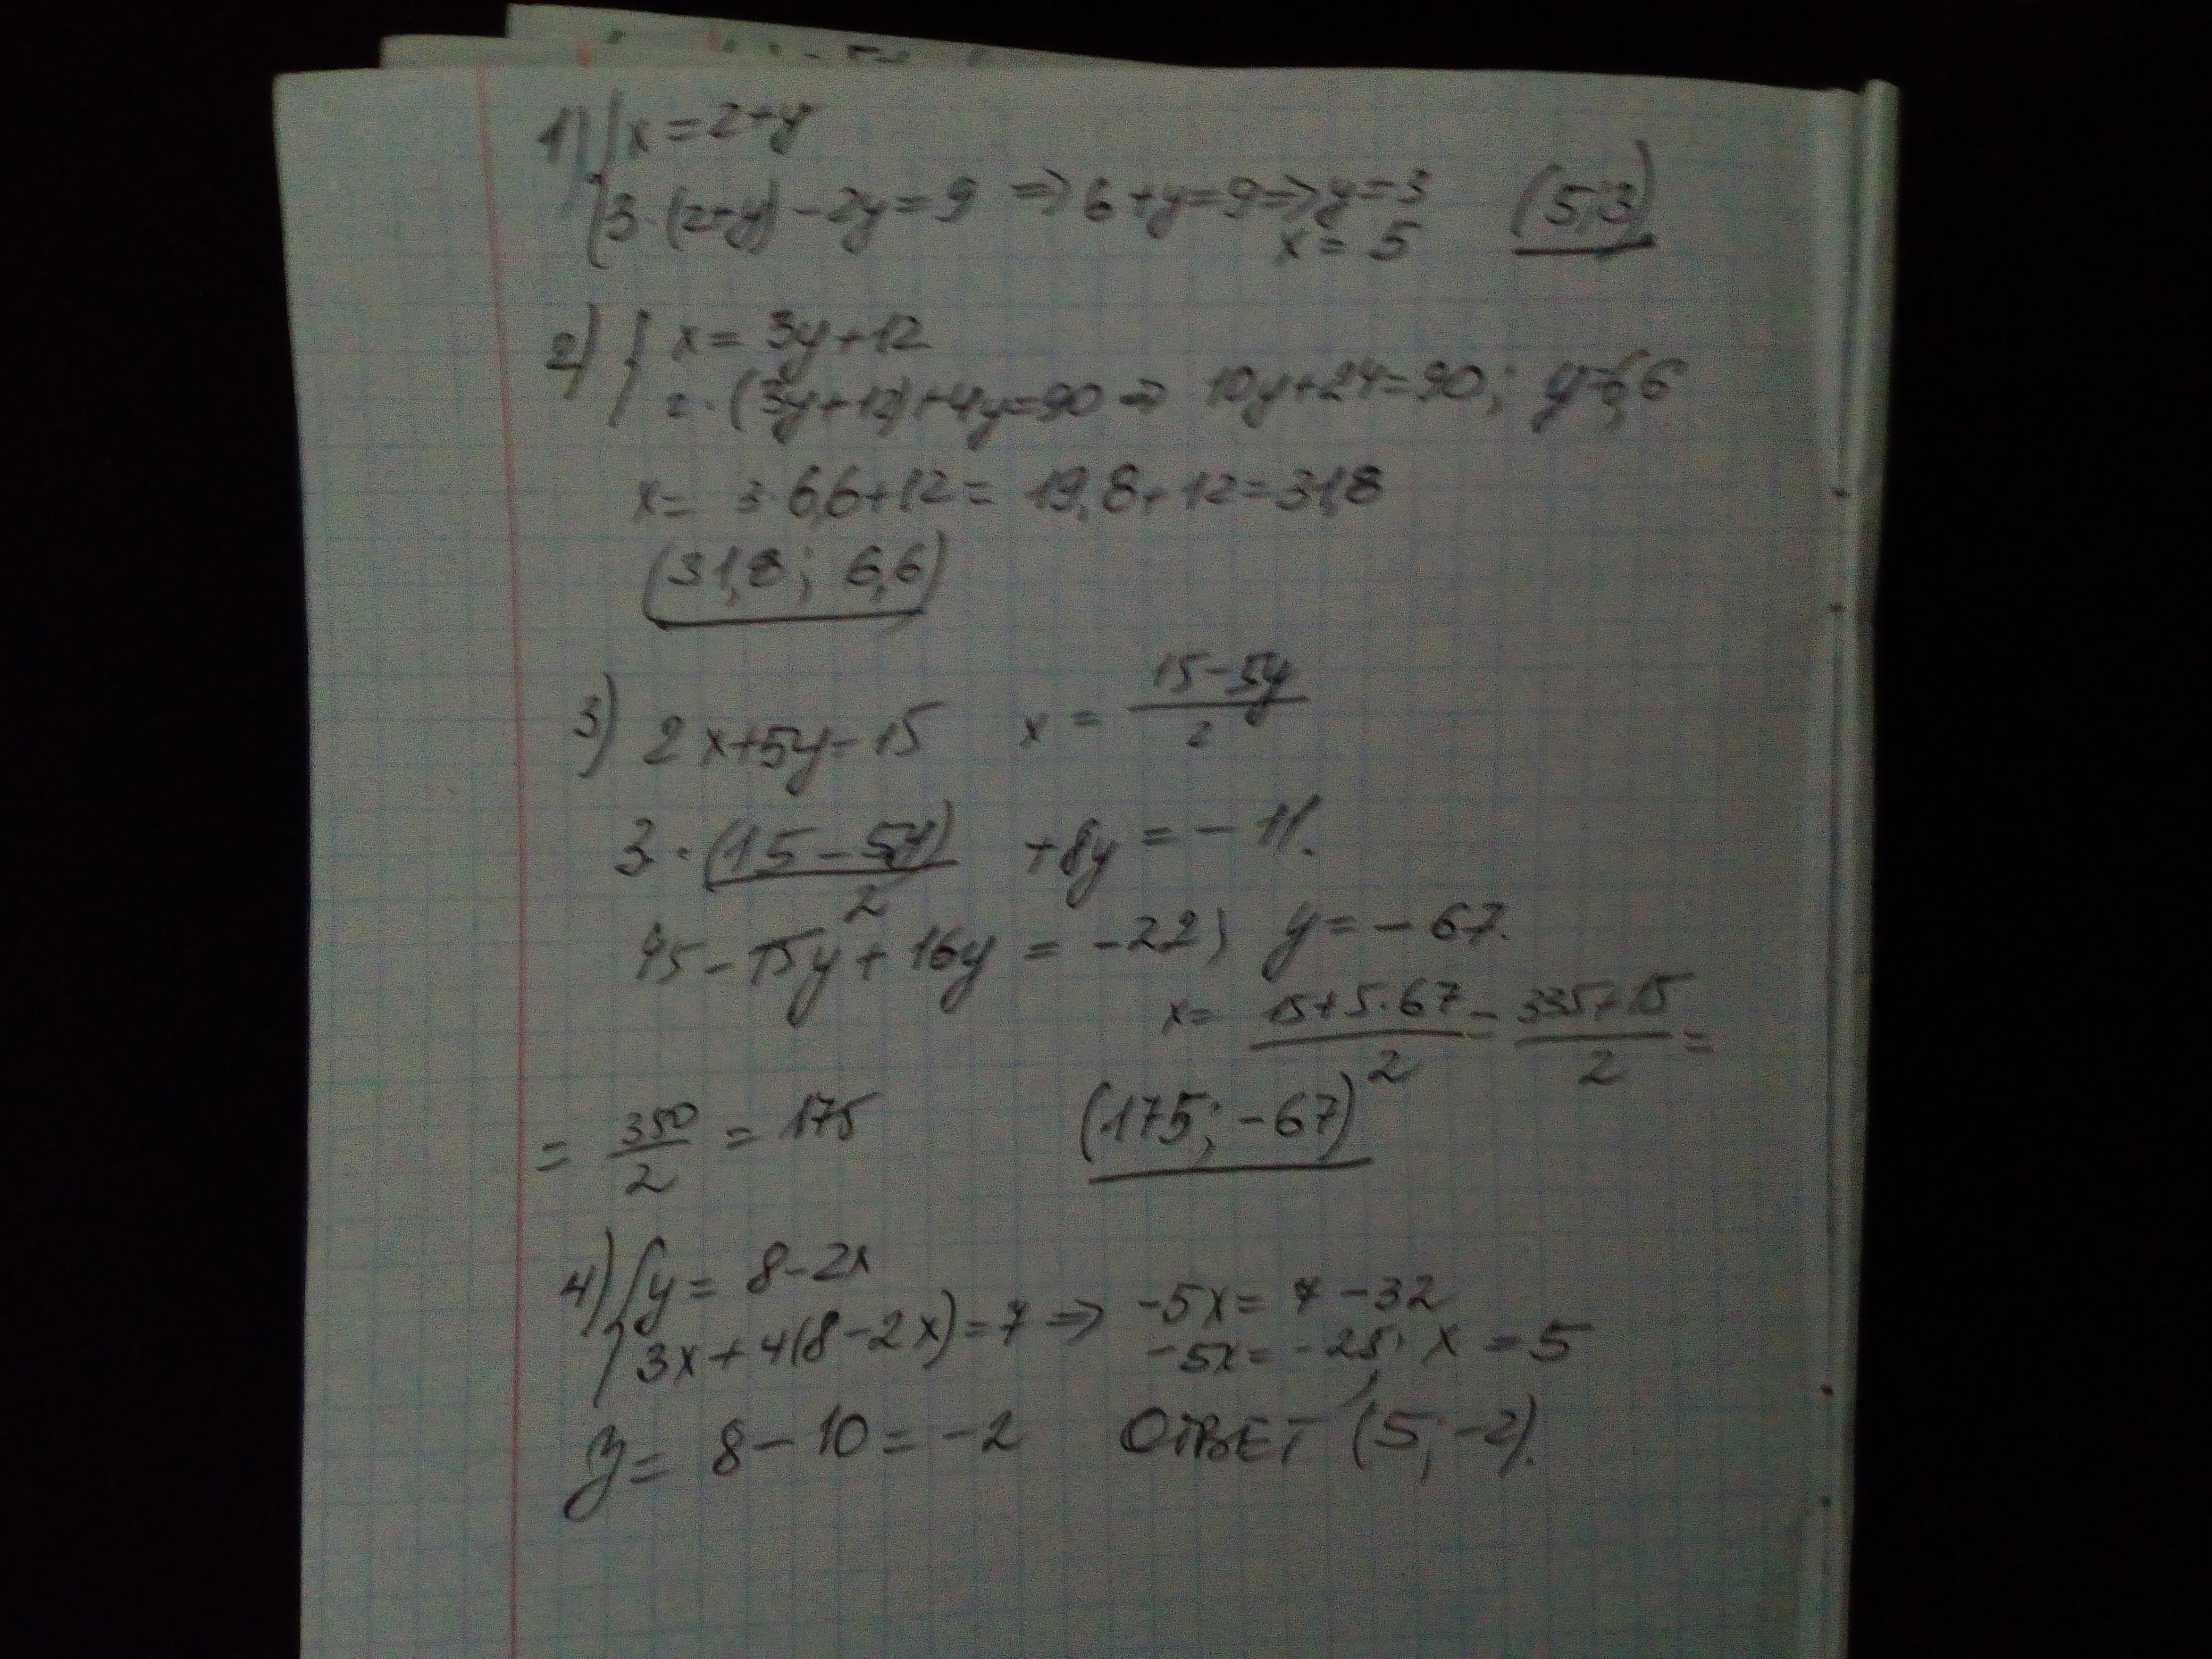 1) { x = 2+y
{ 3·(2+y) - 2y = 9 => 6+y = 9 => y = 3 (5;3)
x = 5
2) { x = 3y+12
2·(3y+12)+4y=90 => 10y+24=90; y=6,6
x = 3·6,6+12 = 19,8+12=31,8
(31,8; 6,6)
3) 2x+5y=15 x = (15-5y)/2
3·(15-5y)/2 +8y = -11.
45-15y+16y = -22; y = -67.
x = (15+5·67)/2 = (335+15)/2 =
= 350/2 = 175 (175; -67)
4) { y = 8-2x
{ 3x+4(8-2x)=7 => -5x = 7-32
-5x = -25; x = 5
y = 8-10 = -2 ОТВЕТ (5; -2).